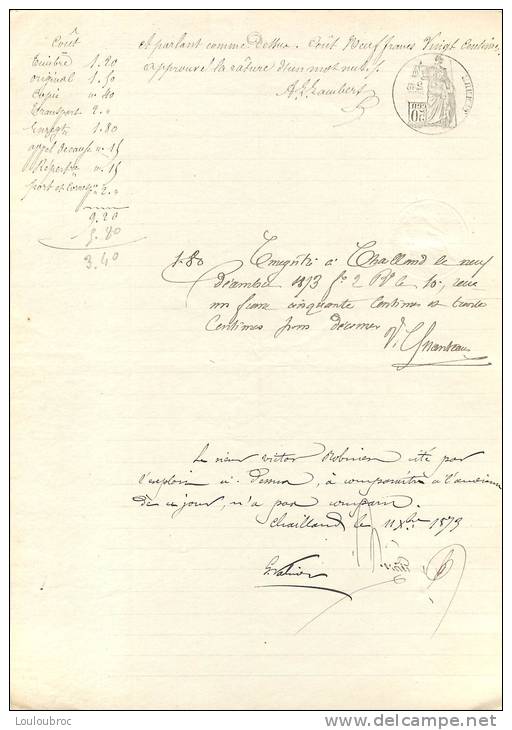 Coût
Timbre 1.20
original 1.50
Copie " 40
Transport 2 "
Enregt 1.80
appel de cause " 15
Répertre " 15
port et corresp. 2 "
9.20
5.80
3.40
et parlant comme Dessus. Coût Neuf francs Vingt Centimes
approuvé la rature d'un mot nul.
1.80 Enregistré à Chailland le neuf
décembre 1873 fo 2 Ro le 10, reçu
un franc cinquante Centimes et trente
Centimes pour décimes
Le sieur victor Robinson cité par
l'exploit ci-dessus, à comparaître à l'audience
de ce jour, n'a pas comparu.
Chailland le 11 Xbre 1873
Louloubroc
www.delcampe.net